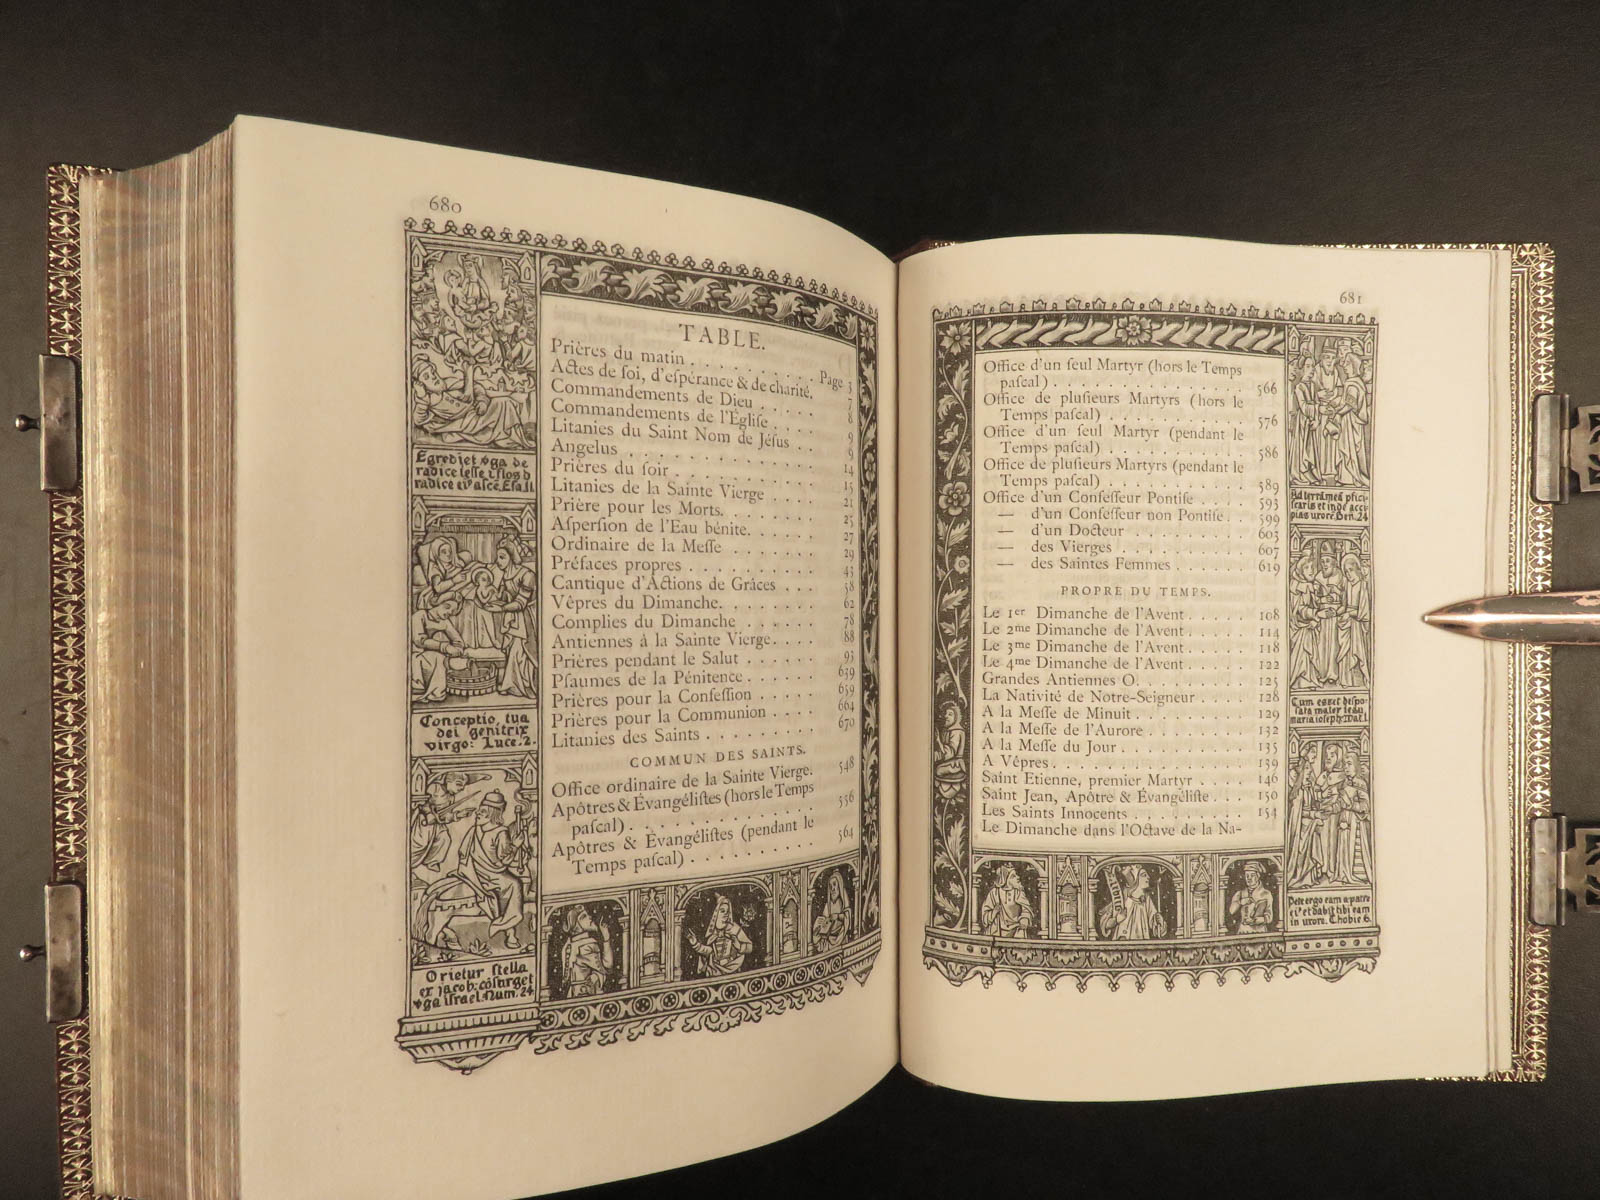 680
TABLE.
Prières du matin . . . . . . . . . . Page 3
Actes de foi, d'eſpérance & de charité. 7
Commandements de Dieu . . . . . 8
Commandements de l'Égliſe . . . . 9
Litanies du Saint Nom de Jéſus . . 9
Angelus . . . . . . . . . . . 14
Prières du ſoir . . . . . . . . . 15
Litanies de la Sainte Vierge . . . . 21
Prière pour les Morts. . . . . . . 25
Aſperſion de l'Eau bénite. . . . . 27
Ordinaire de la Meſſe . . . . . . 29
Préfaces propres . . . . . . . . 43
Cantique d'Actions de Grâces . . . 58
Vêpres du Dimanche. . . . . . . 62
Complies du Dimanche . . . . . 78
Antiennes à la Sainte Vierge. . . . 88
Prières pendant le Salut . . . . . 93
Pſaumes de la Pénitence . . . . . 639
Prières pour la Confeſſion . . . . 659
Prières pour la Communion . . . . 664
Litanies des Saints . . . . . . . 670
COMMUN DES SAINTS.
Office ordinaire de la Sainte Vierge. 548
Apôtres & Évangéliſtes (hors le Temps
paſcal) . . . . . . . . . . . 556
Apôtres & Évangéliſtes (pendant le
Temps paſcal) . . . . . . . . . 564
Egrediet vga de
radice Iesse
radice ei' asce. Esa. 11
Conceptio tua
dei genitrix
virgo: Luce. 2.
Orietur stella
ex jacob: cōsurget
vga israel: Num. 24
681
Office d'un ſeul Martyr (hors le Temps
paſcal) . . . . . . . . . . . 566
Office de pluſieurs Martyrs (hors le
Temps paſcal) . . . . . . . . . 576
Office d'un ſeul Martyr (pendant le
Temps paſcal) . . . . . . . . . 586
Office de pluſieurs Martyrs (pendant le
Temps paſcal) . . . . . . . . . 589
Office d'un Confeſſeur Pontife . . . 593
— d'un Confeſſeur non Pontife . . 599
— d'un Docteur . . . . . . . 603
— des Vierges . . . . . . . . 607
— des Saintes Femmes . . . . . 619
PROPRE DU TEMPS.
Le 1er Dimanche de l'Avent . . . . . 108
Le 2me Dimanche de l'Avent . . . . . 114
Le 3me Dimanche de l'Avent . . . . . 118
Le 4me Dimanche de l'Avent . . . . . 122
Grandes Antiennes O. . . . . . . . 125
La Nativité de Notre-Seigneur . . . . 128
A la Meſſe de Minuit . . . . . . . 129
A la Meſſe de l'Aurore . . . . . . 132
A la Meſſe du Jour . . . . . . . 135
A Vêpres . . . . . . . . . . . 139
Saint Etienne, premier Martyr . . . . 146
Saint Jean, Apôtre & Évangéliſte . . . 150
Les Saints Innocents . . . . . . . 154
Le Dimanche dans l'Octave de la Na-
Ad terrā meā
et inde acci
pias uxorē. Gen. 24
Cum esset despo
sata mater iesu
maria ioseph: Mat. 1
Pete ergo eam a patre
ei' et dabit tibi eam
in uxorē. Thobie 6.